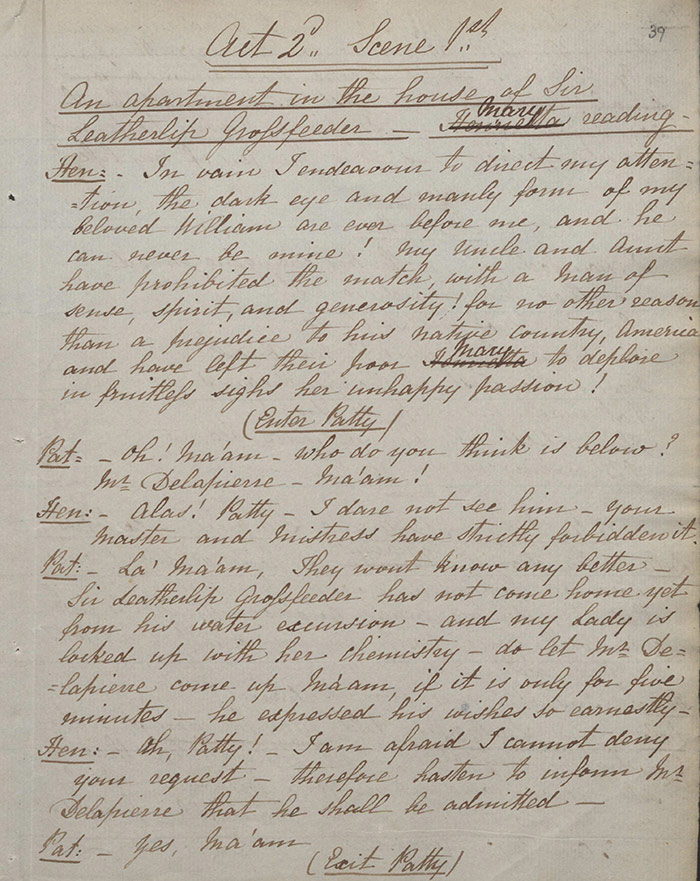 39
Act 2d,, Scene 1st,,
An apartment in the house of Sir
Mary
Leatherlip Grossfeeder — Henrietta reading -
Hen: - In vain I endeavour to direct my atten=
=tion, the dark eye and manly form of my
beloved William are ever before me, and he
can never be mine! my Uncle and Aunt
have prohibited the match, with a man of
sense, spirit, and generosity! for no other reason
than a prejudice to his native country, America
Mary
and have left their poor Henrietta to deplore
in fruitless sighs her unhappy passion!
(Enter Patty)
Pat: - Oh! Ma'am - who do you think is below?
Mr Delapierre - Ma'am!
Hen: - Alas! Patty - I dare not see him - your
Master and Mistress have strictly forbidden it.
Pat: - La' Ma'am, They wont know any better -
Sir Leatherlip Grossfeeder has not come home yet
from his water excursion - and my Lady is
locked up with her chemistry - do let Mr De=
=lapierre come up Ma'am, if it is only for five
minutes - he expressed his wishes so earnestly -
Hen: - Oh, Patty! - I am afraid I cannot deny
your request - therefore hasten to inform Mr
Delapierre that he shall be admitted -
Pat: - Yes, Ma'am
(Exit Patty)